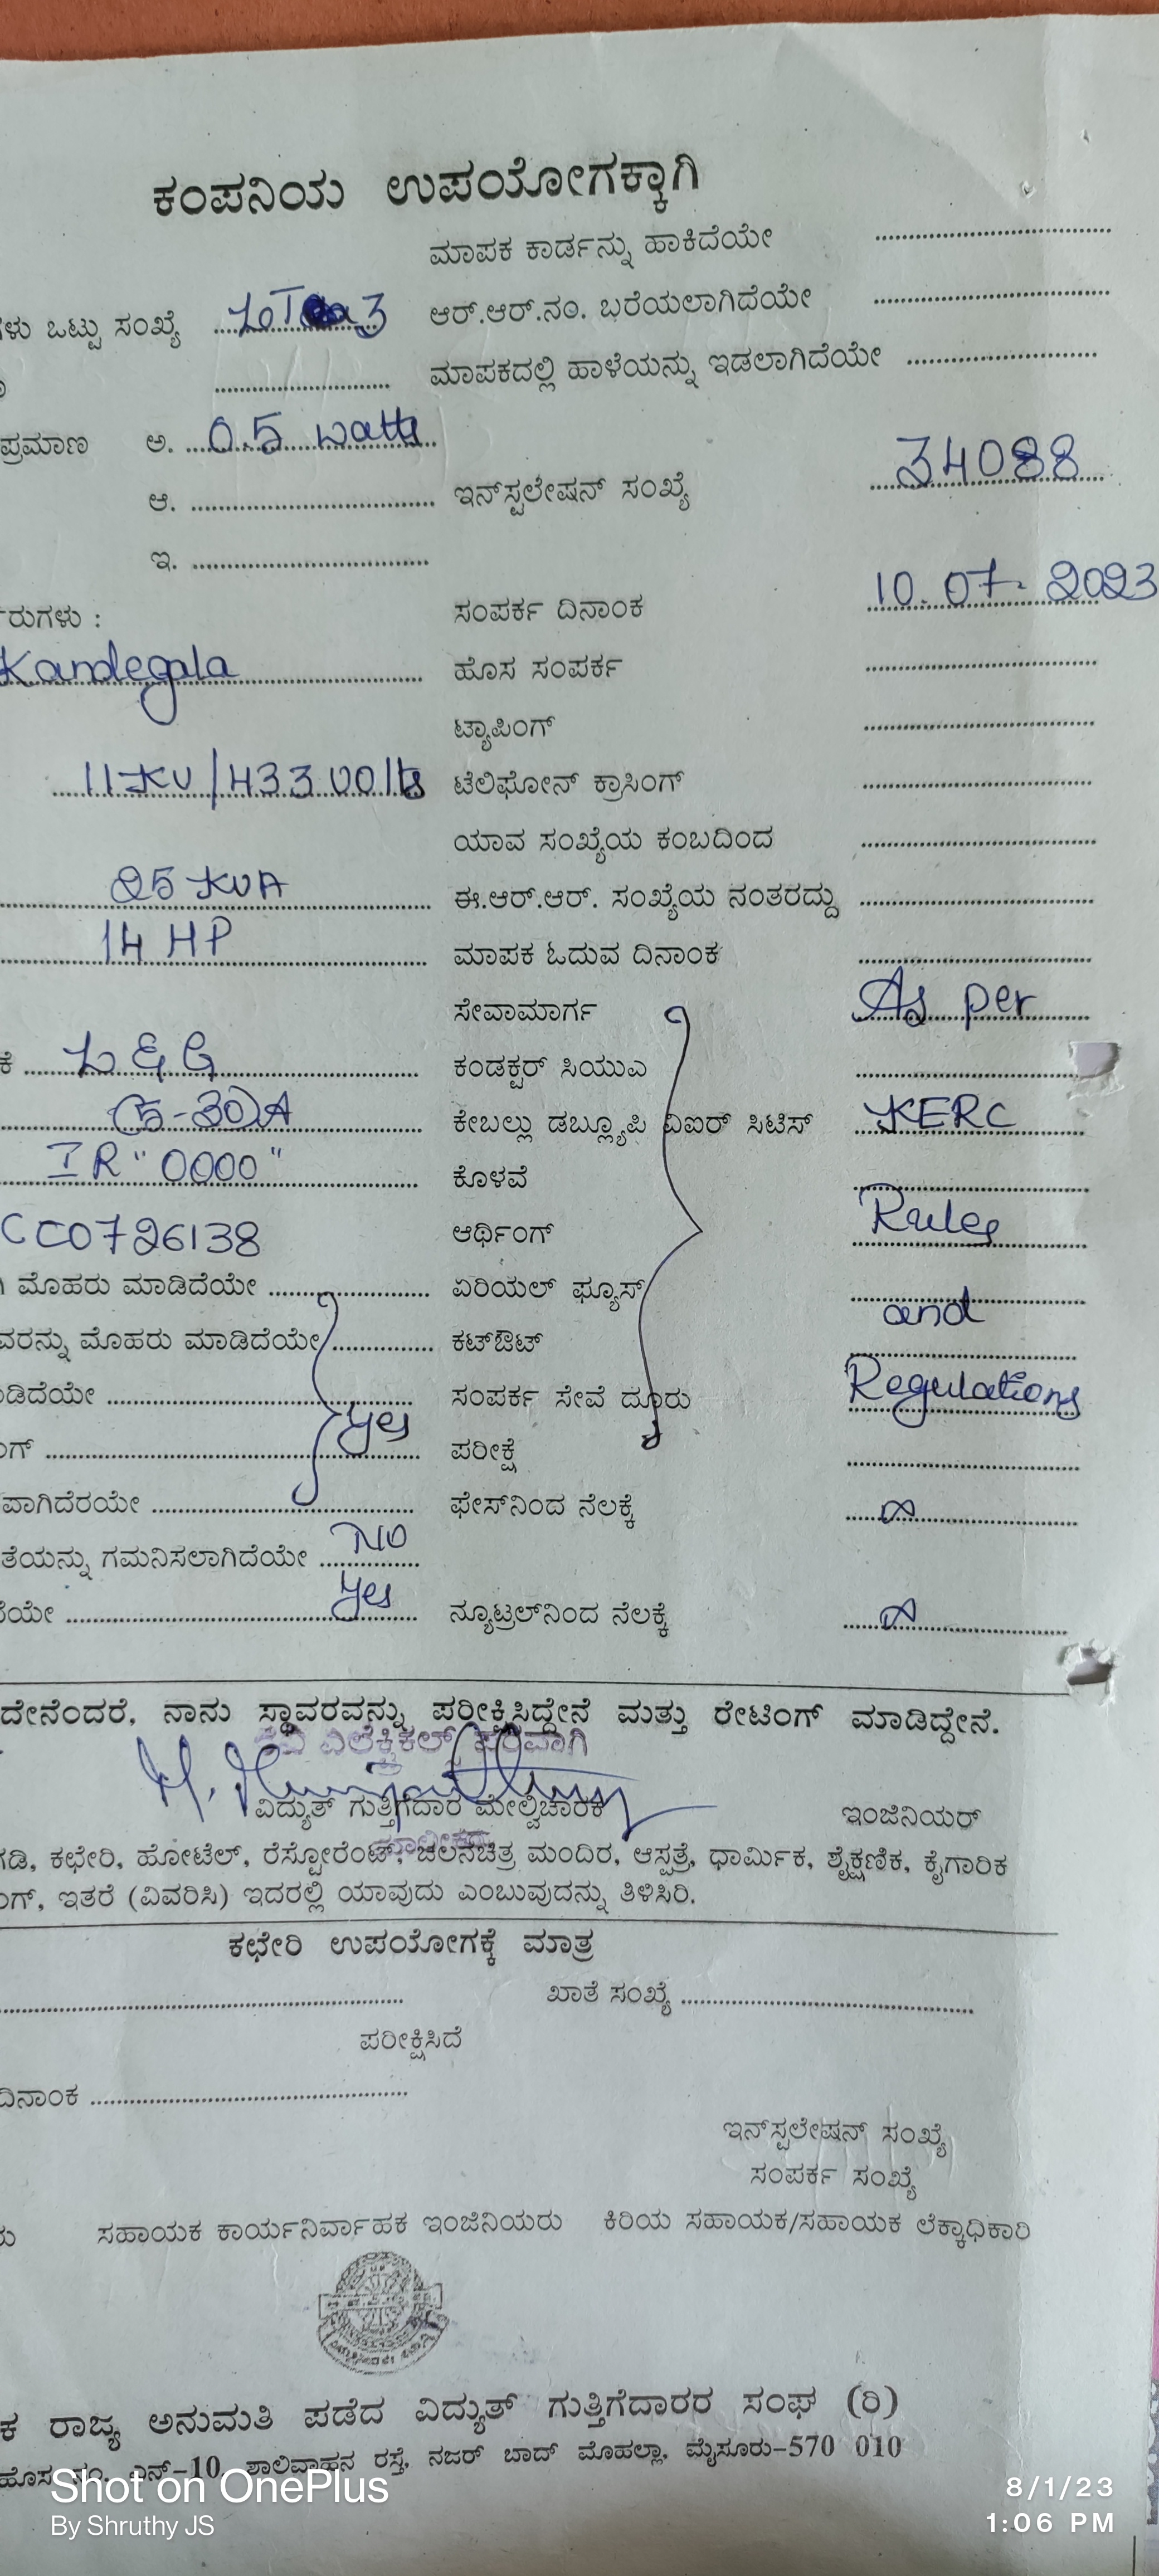 ಕಂಪನಿಯ ಉಪಯೋಗಕ್ಕಾಗಿ
ಮಾಪಕ ಕಾರ್ಡನ್ನು ಹಾಕಿದೆಯೇ
ಗಳು ಒಟ್ಟು ಸಂಖ್ಯೆ 3 ಆರ್.ಆರ್.ನಂ. ಬರೆಯಲಾಗಿದೆಯೇ
ಮಾಪಕದಲ್ಲಿ ಹಾಳೆಯನ್ನು ಇಡಲಾಗಿದೆಯೇ
ಪ್ರಮಾಣ ಅ. 0.5 watts
ಆ. ಇನ್‌ಸ್ಟಲೇಷನ್ ಸಂಖ್ಯೆ 34088
ಇ.
ರುಗಳು : ಸಂಪರ್ಕ ದಿನಾಂಕ 10.07-2023
Kandegala ಹೊಸ ಸಂಪರ್ಕ
ಟ್ಯಾಪಿಂಗ್
11KV/433 Volts ಟೆಲಿಫೋನ್ ಕ್ರಾಸಿಂಗ್
ಯಾವ ಸಂಖ್ಯೆಯ ಕಂಬದಿಂದ
25 KVA ಈ.ಆರ್.ಆರ್. ಸಂಖ್ಯೆಯ ನಂತರದ್ದು
14 HP ಮಾಪಕ ಓದುವ ದಿನಾಂಕ
ಸೇವಾಮಾರ್ಗ As per
ಕೆ L & G ಕಂಡಕ್ಟರ್ ಸಿಯುಎ
(5-30)A ಕೇಬಲ್ಲು ಡಬ್ಲ್ಯೂಪಿ ವಿಐರ್ ಸಿಟಿಸ್ KERC
IR "0000" ಕೊಳವೆ
CC0726138 ಆರ್ಥಿಂಗ್ Rules
ಮೊಹರು ಮಾಡಿದೆಯೇ ಏರಿಯಲ್ ಫ್ಯೂಸ್ and
ವರನ್ನು ಮೊಹರು ಮಾಡಿದೆಯೇ ಕಟ್‌ಔಟ್
ಡಿದೆಯೇ ಸಂಪರ್ಕ ಸೇವೆ ದೂರು Regulations
ಗ್ yes ಪರೀಕ್ಷೆ
ವಾಗಿದೆರಯೇ ಫೇಸ್‌ನಿಂದ ನೆಲಕ್ಕೆ ∞
ತೆಯನ್ನು ಗಮನಿಸಲಾಗಿದೆಯೇ NO
ಯೇ yes ನ್ಯೂಟ್ರಲ್‌ನಿಂದ ನೆಲಕ್ಕೆ ∞
ದೇನೆಂದರೆ, ನಾನು ಸ್ಥಾವರವನ್ನು ಪರೀಕ್ಷಿಸಿದ್ದೇನೆ ಮತ್ತು ರೇಟಿಂಗ್ ಮಾಡಿದ್ದೇನೆ.
ಎಲೆಕ್ಟ್ರಿಕಲ್ಸ್ ಪರವಾಗಿ
ವಿದ್ಯುತ್ ಗುತ್ತಿಗೆದಾರ ಮೇಲ್ವಿಚಾರಕ ಇಂಜಿನಿಯರ್
ಗಡಿ, ಕಛೇರಿ, ಹೋಟೆಲ್, ರೆಸ್ಟೋರೆಂಟ್, ಚಲನಚಿತ್ರ ಮಂದಿರ, ಆಸ್ಪತ್ರೆ, ಧಾರ್ಮಿಕ, ಶೈಕ್ಷಣಿಕ, ಕೈಗಾರಿಕ
ಗ್, ಇತರೆ (ವಿವರಿಸಿ) ಇದರಲ್ಲಿ ಯಾವುದು ಎಂಬುವುದನ್ನು ತಿಳಿಸಿರಿ.
ಕಛೇರಿ ಉಪಯೋಗಕ್ಕೆ ಮಾತ್ರ
ಖಾತೆ ಸಂಖ್ಯೆ
ಪರೀಕ್ಷಿಸಿದೆ
ದಿನಾಂಕ
ಇನ್‌ಸ್ಟಲೇಷನ್ ಸಂಖ್ಯೆ
ಸಂಪರ್ಕ ಸಂಖ್ಯೆ
ಸಹಾಯಕ ಕಾರ್ಯನಿರ್ವಾಹಕ ಇಂಜಿನಿಯರು ಕಿರಿಯ ಸಹಾಯಕ/ಸಹಾಯಕ ಲೆಕ್ಕಾಧಿಕಾರಿ
ಕ ರಾಜ್ಯ ಅನುಮತಿ ಪಡೆದ ವಿದ್ಯುತ್ ಗುತ್ತಿಗೆದಾರರ ಸಂಘ (ರಿ)
ಹೊಸ ನಂ. ಎನ್-10, ಶಾಲಿವಾಹನ ರಸ್ತೆ, ನಜರ್ ಬಾದ್ ಮೊಹಲ್ಲಾ, ಮೈಸೂರು-570 010
Shot on OnePlus
By Shruthy JS
8/1/23
1:06 PM